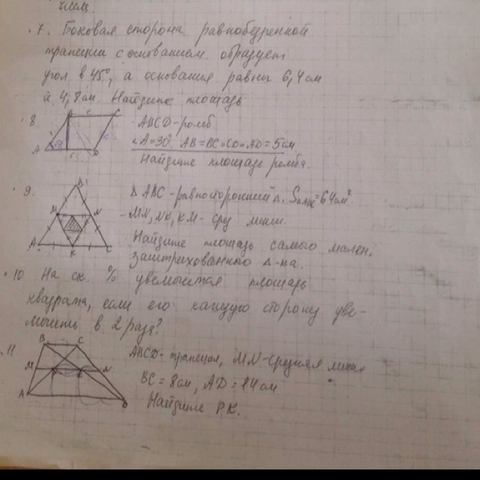 7. Боковая сторона равнобедренной
трапеции с основанием образует
угол в 45°, а основания равны 6,4 см
и 4,8 см. Найдите площадь
8
B C
A D
ABCD - ромб
∠A=30°, AB=BC=CD=AD=5см
Найдите площадь ромба.
9.
B
M N
A K C
Δ ABC - равносторонний Δ. S=64см²
MN, NK, KM - сред линии.
Найдите площадь самого мален.
заштрихованного Δ-ка.
10 На ск. % увеличится площадь
квадрата, если его каждую сторону уве-
личить в 2 раза?
11
B C
M N
A D
ABCD - трапеция, MN - средняя линия
BC = 8см, AD = 14см
Найдите PK.